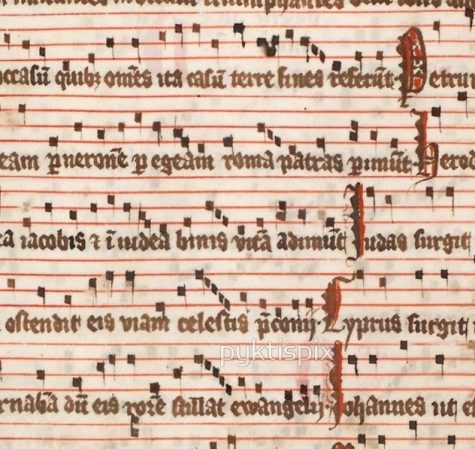 occasū quibz om̄es ita casū terre fines referūt Petrum
eam p neronē p egeam roma patras pimūt Herod
ta iacobis ⁊ ī iudea binis vitā adimūt Iudas surgit
ostendit eis viam celestis p̄conij. Cyprus surgit
rnabā dū eis rore stillat ewangelij. Johannes ut
pyktispix